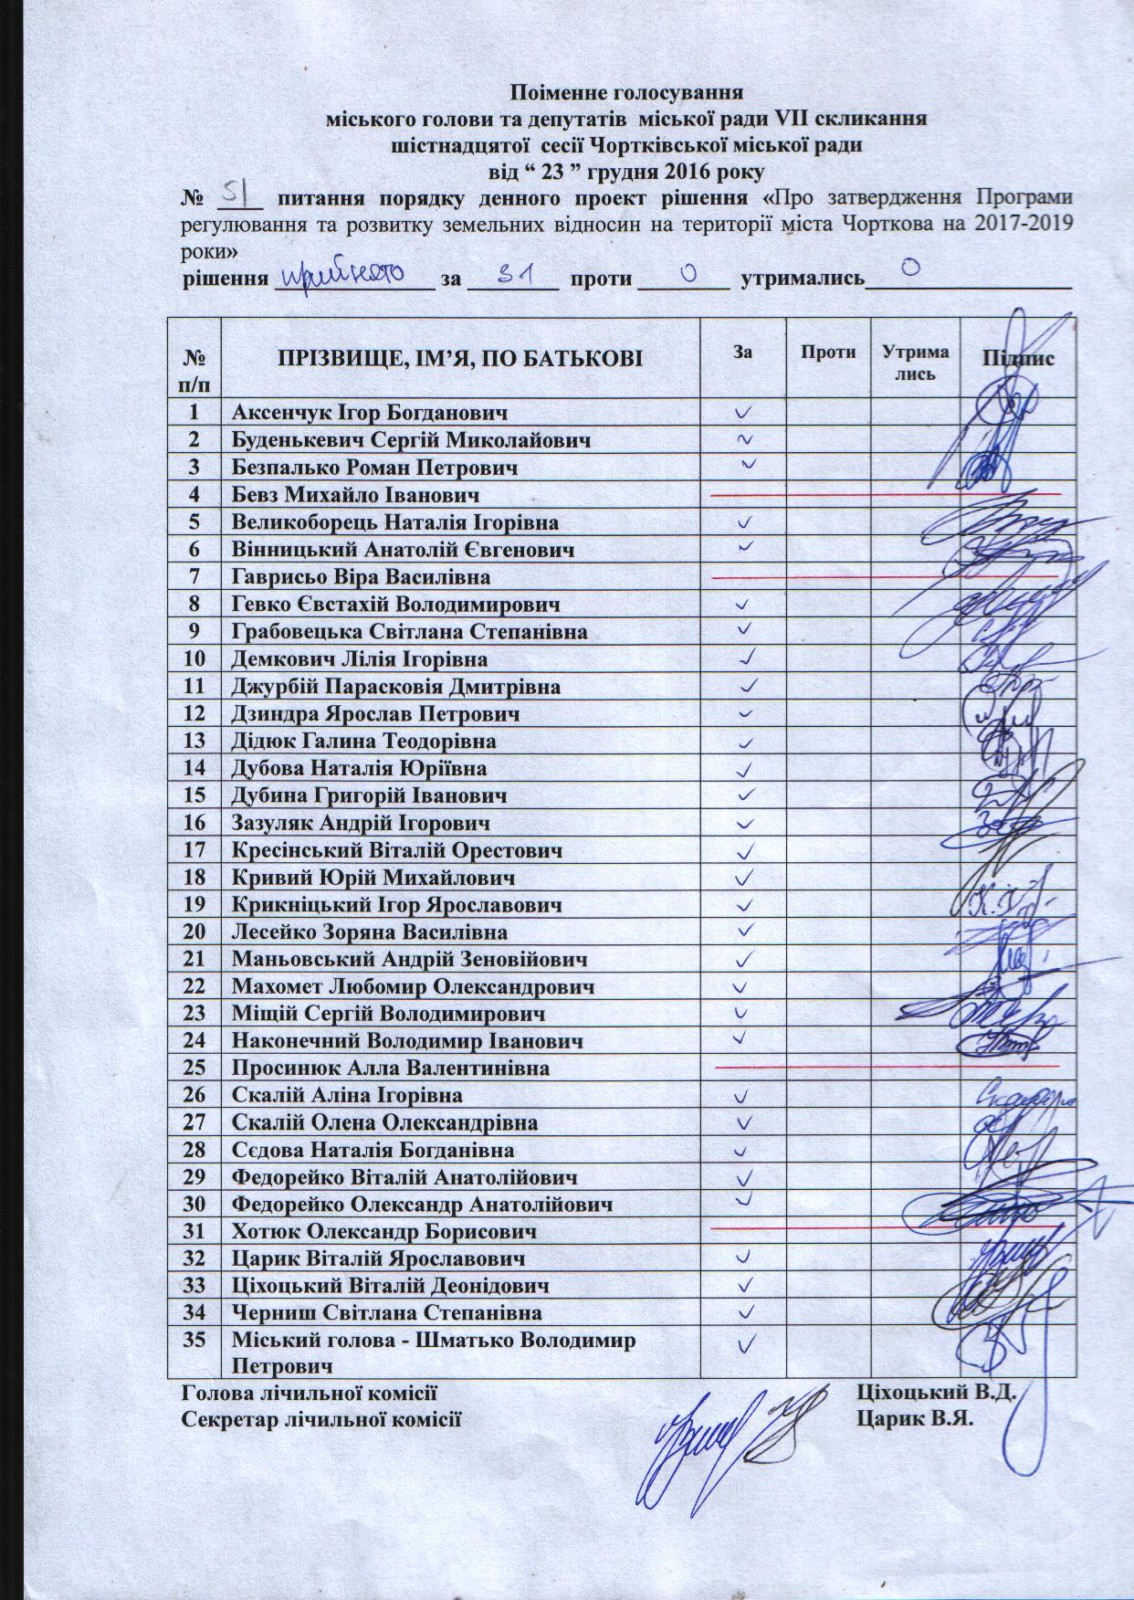 Поіменне голосування
міського голови та депутатів міської ради VII скликання
шістнадцятої сесії Чортківської міської ради
від “ 23 ” грудня 2016 року
№ 51 питання порядку денного проект рішення «Про затвердження Програми
регулювання та розвитку земельних відносин на території міста Чорткова на 2017-2019
роки»
рішення прийнято за 31 проти 0 утримались 0
№ п/п ПРІЗВИЩЕ, ІМ’Я, ПО БАТЬКОВІ За Проти Утрима лись Підпис
1 Аксенчук Ігор Богданович
2 Буденькевич Сергій Миколайович
3 Безпалько Роман Петрович
4 Бевз Михайло Іванович
5 Великоборець Наталія Ігорівна
6 Вінницький Анатолій Євгенович
7 Гаврисьо Віра Василівна
8 Гевко Євстахій Володимирович
9 Грабовецька Світлана Степанівна
10 Демкович Лілія Ігорівна
11 Джурбій Парасковія Дмитрівна
12 Дзиндра Ярослав Петрович
13 Дідюк Галина Теодорівна
14 Дубова Наталія Юріївна
15 Дубина Григорій Іванович
16 Зазуляк Андрій Ігорович
17 Кресінський Віталій Орестович
18 Кривий Юрій Михайлович
19 Крикніцький Ігор Ярославович
20 Лесейко Зоряна Василівна
21 Маньовський Андрій Зеновійович
22 Махомет Любомир Олександрович
23 Міщій Сергій Володимирович
24 Наконечний Володимир Іванович
25 Просинюк Алла Валентинівна
26 Скалій Аліна Ігорівна
27 Скалій Олена Олександрівна
28 Сєдова Наталія Богданівна
29 Федорейко Віталій Анатолійович
30 Федорейко Олександр Анатолійович
31 Хотюк Олександр Борисович
32 Царик Віталій Ярославович
33 Ціхоцький Віталій Деонідович
34 Черниш Світлана Степанівна
35 Міський голова - Шматько Володимир
Петрович
Голова лічильної комісії Ціхоцький В.Д.
Секретар лічильної комісії Царик В.Я.